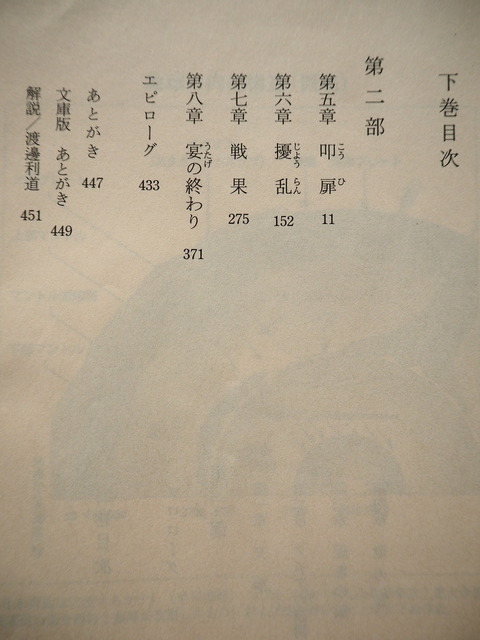 下巻目次
第二部
第五章 叩扉 こうひ 11
第六章 擾乱 じょうらん 152
第七章 戦果 275
第八章 宴の終わり うたげ 371
エピローグ 433
あとがき 447
文庫版 あとがき 449
解説／渡邊利道 451